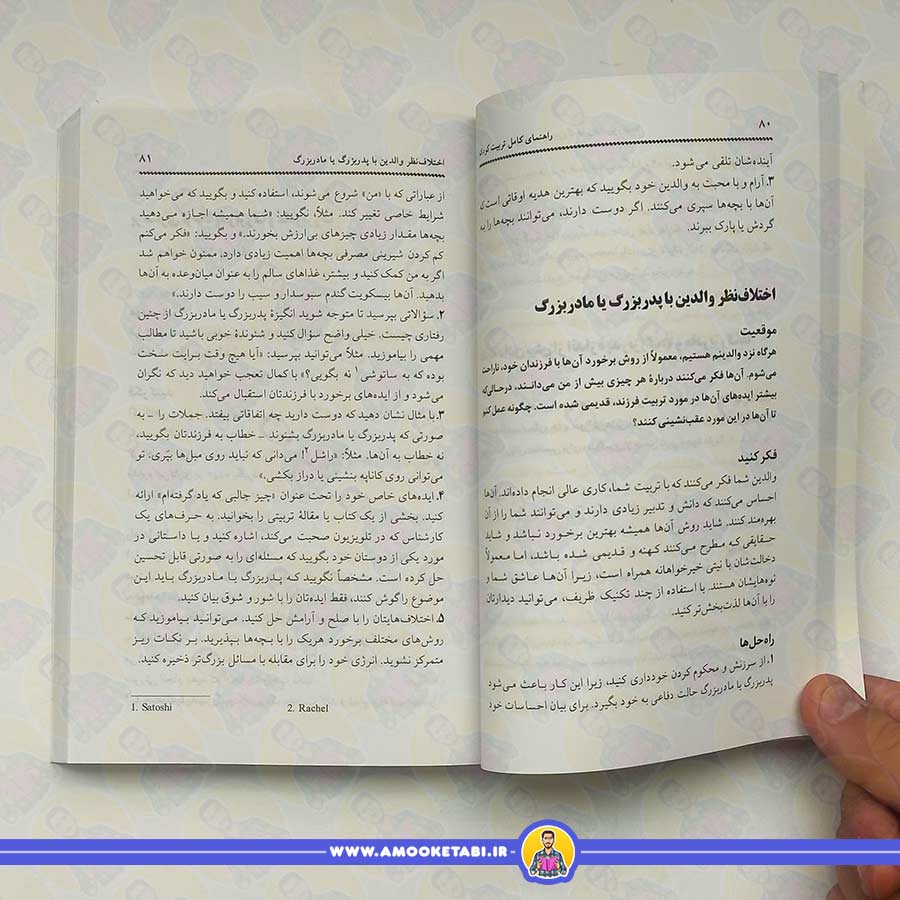 ۸۰
راهنمای کامل تربیت کودک
آینده‌شان تلقی می‌شود.
۳. آرام و با محبت به والدین خود بگویید که بهترین هدیه اوقاتی است که
آن‌ها با بچه‌ها سپری می‌کنند. اگر دوست دارند، می‌توانند بچه‌ها را به
گردش یا پارک ببرند.
اختلاف‌نظر والدین با پدربزرگ یا مادربزرگ
موقعیت
هرگاه نزد والدینم هستیم، معمولاً از روش برخورد آن‌ها با فرزندان خود، ناراحت
می‌شوم. آن‌ها فکر می‌کنند دربارهٔ هر چیزی بیش از من می‌دانند، درحالی‌که
بیشتر ایده‌های آن‌ها در مورد تربیت فرزند، قدیمی شده است. چگونه عمل کنم
تا آن‌ها در این مورد عقب‌نشینی کنند؟
فکر کنید
والدین شما فکر می‌کنند که با تربیت شما، کاری عالی انجام داده‌اند. آن‌ها
احساس می‌کنند که دانش و تدبیر زیادی دارند و می‌توانند شما را از آن
بهره‌مند کنند. شاید روش آن‌ها همیشه بهترین برخورد نباشد و شاید
حقایقی که مطرح می‌کنند کهنه و قدیمی شده باشد، اما معمولاً
دخالت‌شان با نیتی خیرخواهانه همراه است، زیرا آن‌ها عاشق شما و
نوه‌هایشان هستند. با استفاده از چند تکنیک ظریف، می‌توانید دیدارتان
را با آن‌ها لذت‌بخش‌تر کنید.
راه‌حل‌ها
۱. از سرزنش و محکوم کردن خودداری کنید، زیرا این کار باعث می‌شود
پدربزرگ یا مادربزرگ حالت دفاعی به خود بگیرد. برای بیان احساسات خود
اختلاف‌نظر والدین با پدربزرگ یا مادربزرگ
۸۱
از عباراتی که با «من» شروع می‌شوند، استفاده کنید و بگویید که می‌خواهید
شرایط خاصی تغییر کند. مثلاً، نگویید: «شما همیشه اجازه می‌دهید
بچه‌ها مقدار زیادی چیزهای بی‌ارزش بخورند.» و بگویید: «فکر می‌کنم
کم کردن شیرینی مصرفی بچه‌ها اهمیت زیادی دارد. ممنون خواهم شد
اگر به من کمک کنید و بیشتر، غذاهای سالم را به عنوان میان‌وعده به آن‌ها
بدهید. آن‌ها بیسکویت گندم سبوسدار و سیب را دوست دارند.»
۲. سؤالاتی بپرسید تا متوجه شوید انگیزهٔ پدربزرگ یا مادربزرگ از چنین
رفتاری چیست. خیلی واضح سؤال کنید و شنوندهٔ خوبی باشید تا مطالب
مهمی را بیاموزید. مثلاً می‌توانید بپرسید: «آیا هیچ وقت برایت سخت
بوده که به ساتوشی۱ نه بگویی؟» با کمال تعجب خواهید دید که نگران
می‌شود و از ایده‌های برخورد با فرزندتان استقبال می‌کند.
۳. با مثال نشان دهید که دوست دارید چه اتفاقاتی بیفتد. جملات را ـ به
صورتی که پدربزرگ یا مادربزرگ بشنوند ـ خطاب به فرزندتان بگویید،
نه خطاب به آن‌ها. مثلاً: «راشل۲! می‌دانی که نباید روی مبل‌ها بپری. تو
می‌توانی روی کاناپه بنشینی یا دراز بکشی.»
۴. ایده‌های خاص خود را تحت عنوان «چیز جالبی که یاد گرفته‌ام» ارائه
کنید. بخشی از یک کتاب یا مقالهٔ تربیتی را بخوانید. به حرف‌های یک
کارشناس که در تلویزیون صحبت می‌کند، اشاره کنید و یا داستانی در
مورد یکی از دوستان خود بگویید که مسئله‌ای را به صورتی قابل تحسین
حل کرده است. مشخصاً نگویید که پدربزرگ یا مادربزرگ باید این
موضوع را گوش کنند، فقط ایده‌تان را با شور و شوق بیان کنید.
۵. اختلاف‌هایتان را با صلح و آرامش حل کنید. می‌توانید بیاموزید که
روش‌های مختلف برخورد هریک را با بچه‌ها بپذیرید. بر نکات ریز
متمرکز نشوید. انرژی خود را برای مقابله با مسائل بزرگ‌تر ذخیره کنید.
1. Satoshi 2. Rachel
WWW.AMOOKETABI.IR